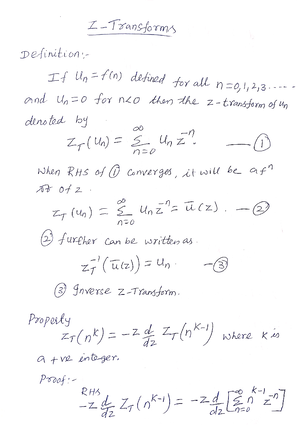 Z-Transforms
Definition:-
If Un = f(n) defined for all n=0,1,2,3.----
and Un=0 for n<0 then the z-transform of un
denoted by
Z_T(Un) = ∞Σn=0 Un z^-n. —①
When RHS of ① converges, it will be a fⁿ
of z.
Z_T(Un) = ∞Σn=0 Un z^-n = ū(z). —②
② further can be written as.
Z_T^-1(ū(z)) = Un. —③
③ Inverse Z-Transform.
Property
Z_T(n^K) = -z d/dz Z_T(n^K-1) where K is
a +ve integer.
Proof:-
RHS
-z d/dz Z_T(n^K-1) = -z d/dz [∞Σn=0 n^K-1 z^-n]